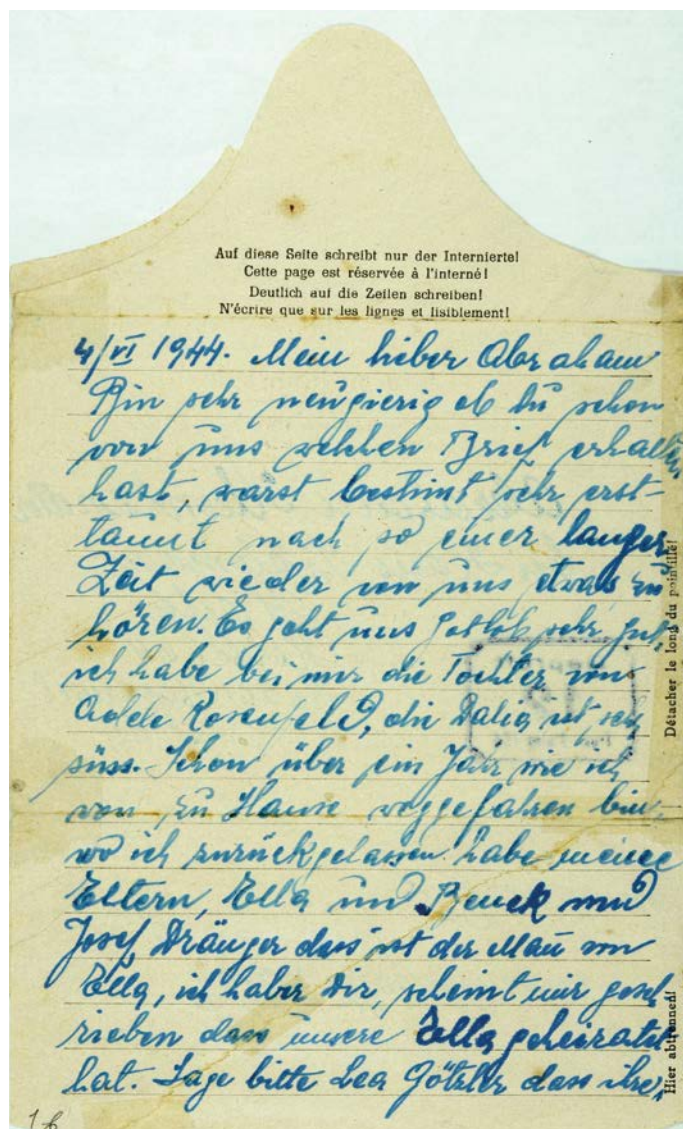 Auf diese Seite schreibt nur der Internierte!
Cette page est réservée à l'interné!
Deutlich auf die Zeilen schreiben!
N'écrire que sur les lignes et lisiblement!
4/VI 1944. Mein lieber Abraham
Bin sehr neugierig ob du schon
von uns welchen Brief erhalten
hast, warst bestimt sehr erst-
taunt nach so einer langer
Zeit wieder von uns etwas zu
hören. Es geht uns Gotlob sehr gut,
ich habe bei mir die Tochter von
Adele Rosenfeld, die Dalia ist sehr
süss. Schon über ein Jahr wie ich
von zu Hause weggefahren bin,
wo ich zurückgelassen habe meine
Eltern, Ella und Benek und
Josef Dränger das ist der Man von
Ella, ich habe Dir, scheint mir gesch
rieben dass unsere Ella geheiratet
hat. Sage bitte Lea Götzler dass ihre
Détacher le long du pointillé!
Hier abtrennen!
16